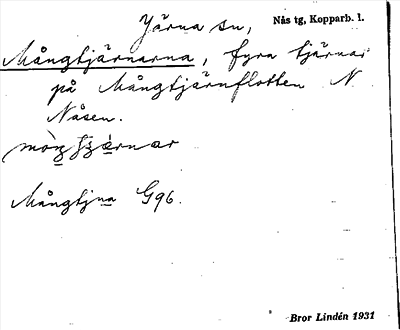 Järna sn, Nås tg, Kopparb. l.
Mångtjärnarna, fyra tjärnar
på Mångtjärnflotten N
Nåsen.
Mångtjna G96.
Bror Lindén 1931